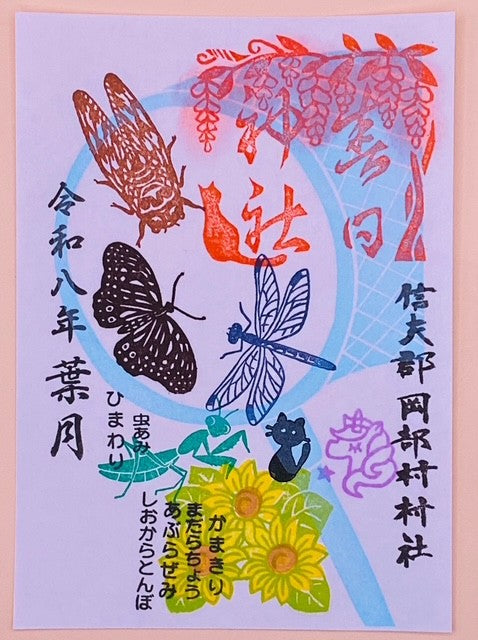 春日
神社
信夫郡岡部村村社
令和八年 葉月
ひまわり
虫あみ
かまきり
まだらちょう
あぶらぜみ
しおからとんぼ